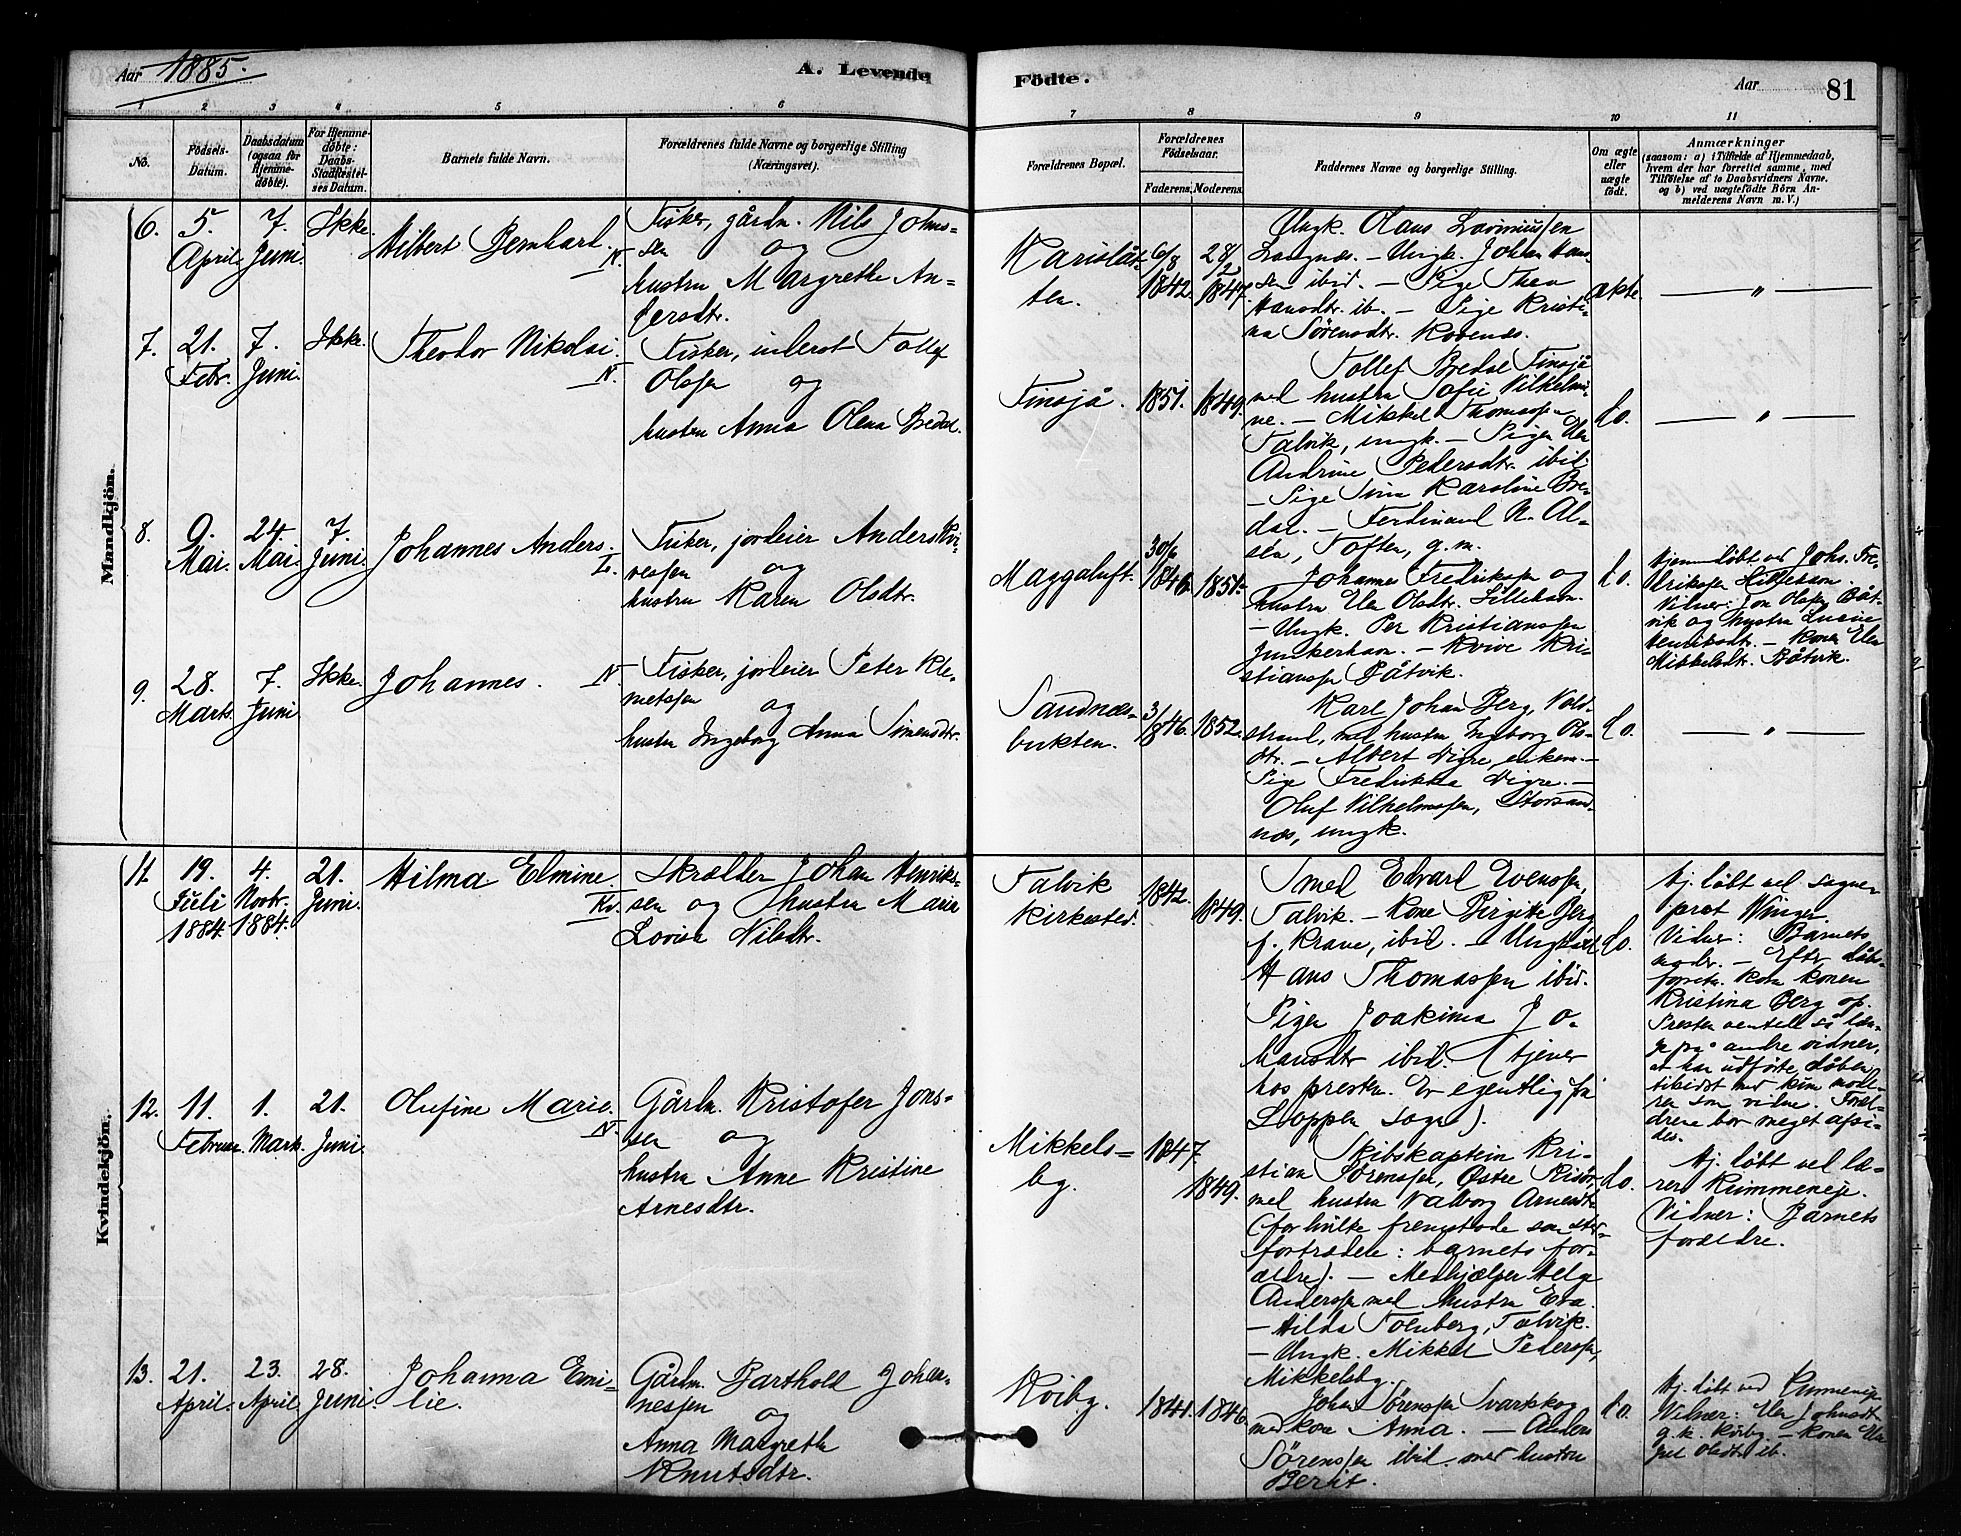 Aar 1885.
A. Levende
Födte.
Aar
81
1 2 3 4 5 6
7 8 9 10 11
No.
Födsels-
Datum.
Daabsdatum
(ogsaa for
Hjemme-
döbte).
For Hjemme-
döbte:
Daabs-
Stadfæstel-
ses Datum.
Barnets fulde Navn.
Forældrenes fulde Navne og borgerlige Stilling
(Næringsvei).
Forældrenes Bopæl.
Forældrenes
Födselsaar.
Faderens.
Moderens.
Faddernes Navne og borgerlige Stilling.
Om ægte
eller
uægte
födt.
Anmærkninger
(saasom: a) i Tilfælde af Hjemmedaab,
hvem der har forrettet samme, med
Tilföielse af to Daabsvidners Navne,
og b) ved uægtefödte Börn An-
melderens Navn m. V.)
Mandkjön.
6.
5.
April
7.
Juni.
Ikke.
Hilbert Bernhard.
N.
Fisker, gårdm. Nils Johns-
sen og
hustru Margrethe An-
dersdtr.
Karislåt-
ten.
6/8
1842.
28/2
1847.
Ungk. Olaus Lavinius Sen
Langnæs. – Ungk. Johan Hans-
sen ibid. – Pige Thea
Hansdtr. ib. – Pige Kristi-
na Sörensdtr.
ækte.
— " —
7.
21.
Febr.
7.
Juni.
Ikke.
Theodor Nikolai.
N.
Fisker, inderst Tollef
Olssen og
hustru Anna Olena Bredal.
Finsjå.
1851.
1849.
Tollef Bredal Finsjå
med hustru Sofie Vilhelmi-
ne. – Mikkel Thomassen
Talvik, ungk. – Pigen
Andrine Pedersdtr. ibid.
– Pige Sina Karoline Bre-
dal. – Ferdinand N. Al-
sen, Toften, g.m.
do.
— " —
8.
9.
Mai.
24.
Mai.
7.
Juni.
Johannes Anders.
L.
Fisker, jordeier Anders Kvi-
vessen og
hustru Karen Olsdtr.
Maggaluft.
30/6
1846.
1851.
Johannes Fredrikssen og
hustru Elen Olsdtr. Lillehavn.
– Ungk. Per Kristianssen
Junkerhavn. – Kvive Kri-
stianssen Båtvik.
do.
Hjemmedöbt ved Johs. Fre-
drikssen Lillehavn.
Vidner: Jon Olssen Båt-
vik og hustru Lusie
Henriksdtr. – Konen Elen
Mikkelsdtr. Båtvik.
9.
28.
Marts
7.
Juni
Ikke.
Johannes.
N.
Fisker, jordeier Peter Kle-
metsen og
hustru Ingeborg Anna Simensdtr.
Sandnæs-
bukten.
1846.
1852.
Karl Johan Berg, Vold-
strand, med hustru Ingeborg Ols-
dtr. – Albert Digre, enkem. –
Pige Fredrikka Digre. –
Oluf Vilhelmssen, Storsand-
næs, ungk.
do.
— " —
Kvindekjön.
11.
19.
Juli
1884.
4.
Novbr.
1884.
21.
Juni.
Hilma Elmine.
Kv.
Skrædder Johan Henrik-
sen og hustru Maria
Lovise Nilsdtr.
Talvik
kirkested.
1842.
1849.
Smed Edvard Evenssen,
Talvik. – Kone Birgitte Berg
f. Krane, ibid. – Ungkarl
Hans Thomassen ibid.
Pigen Joakima Jo-
hansdtr ibid. (tjener
hos presten. Er egentlig fra
Loppen sogn).
do.
Hj. döbt ved sogne-
prst Winger.
Vidner: Barnets
moder. – Efter döbs-
forretn. kom konen
Kristina Berg op.
Presten ventede så læn-
ge på andre vidner,
at han udförte dåben
tilsidst med kun mode-
ren som vidne. Foræl-
drene bor meget afsi-
des.
12.
11.
Februar.
1.
Mark.
21.
Juni.
Olufine Marie.
N.
Gårdm. Kristofer Jons-
sen og
hustru Anne Kristine
Arnesdtr.
Mikkels-
bg.
1847.
1849.
Skibskaptein Kri-
stian Sörenssen, Östre Risör,
med hustru Valborg Arnesdtr
(for hvilke fremstode som sted-
fortrædere: barnets for-
ældre). – Medhjælper Helge
Anderssen med hustru Eva.
– Hilda Tofenberg, Talvik.
– Ungk. Mikkel Pederssen,
Mikkelsbg.
do.
Hj. döbt ved læ-
rer Rummeneje.
Vidner: Barnets
forældre.
13.
21.
April.
23.
April
28.
Juni
Johanna Emi-
lie.
Gårdm. Barthold Johan-
nessen
og
Anna Margrethe
Knutsdtr.
Kvibg.
1841.
1846.
Johan Sörenssen Svartskog
med kone Anna. – Anders
Sörenssen ibid. med hustru
Berit.
do.
Hj. döbt ved
Vidner: Elen Johnsdt
g.k. Kvibg. – konen
Olsdtr ib.